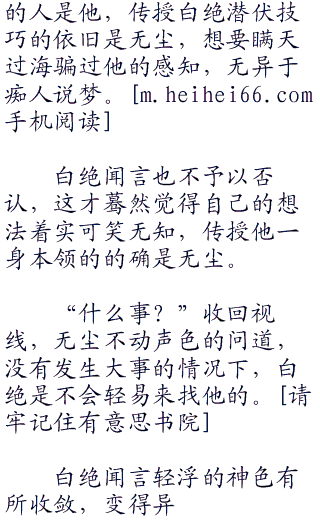 的人是他，传授白绝潜伏技
巧的依旧是无尘，想要瞒天
过海骗过他的感知，无异于
痴人说梦。[m.heihei66.com
手机阅读]
白绝闻言也不予以否
认，这才蓦然觉得自己的想
法着实可笑无知，传授他一
身本领的的确是无尘。
“什么事？”收回视
线，无尘不动声色的问道，
没有发生大事的情况下，白
绝是不会轻易来找他的。[请
牢记住有意思书院]
白绝闻言轻浮的神色有
所收敛，变得异